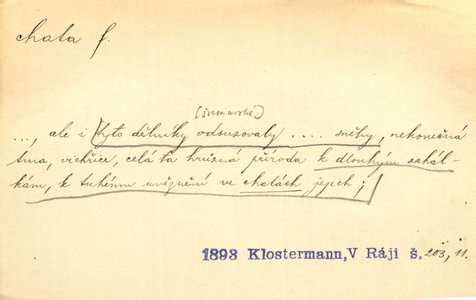 chata f.
(šumavské)
..., ale i tyto dělníky odsuzovaly .... sněhy, nekonečná
tma, vichřice, celá ta hrůzná příroda k dlouhým zahál-
kám, k tuhému uvěznění ve chatách jejich;
1893 Klostermann, V Ráji š. 203, 11.